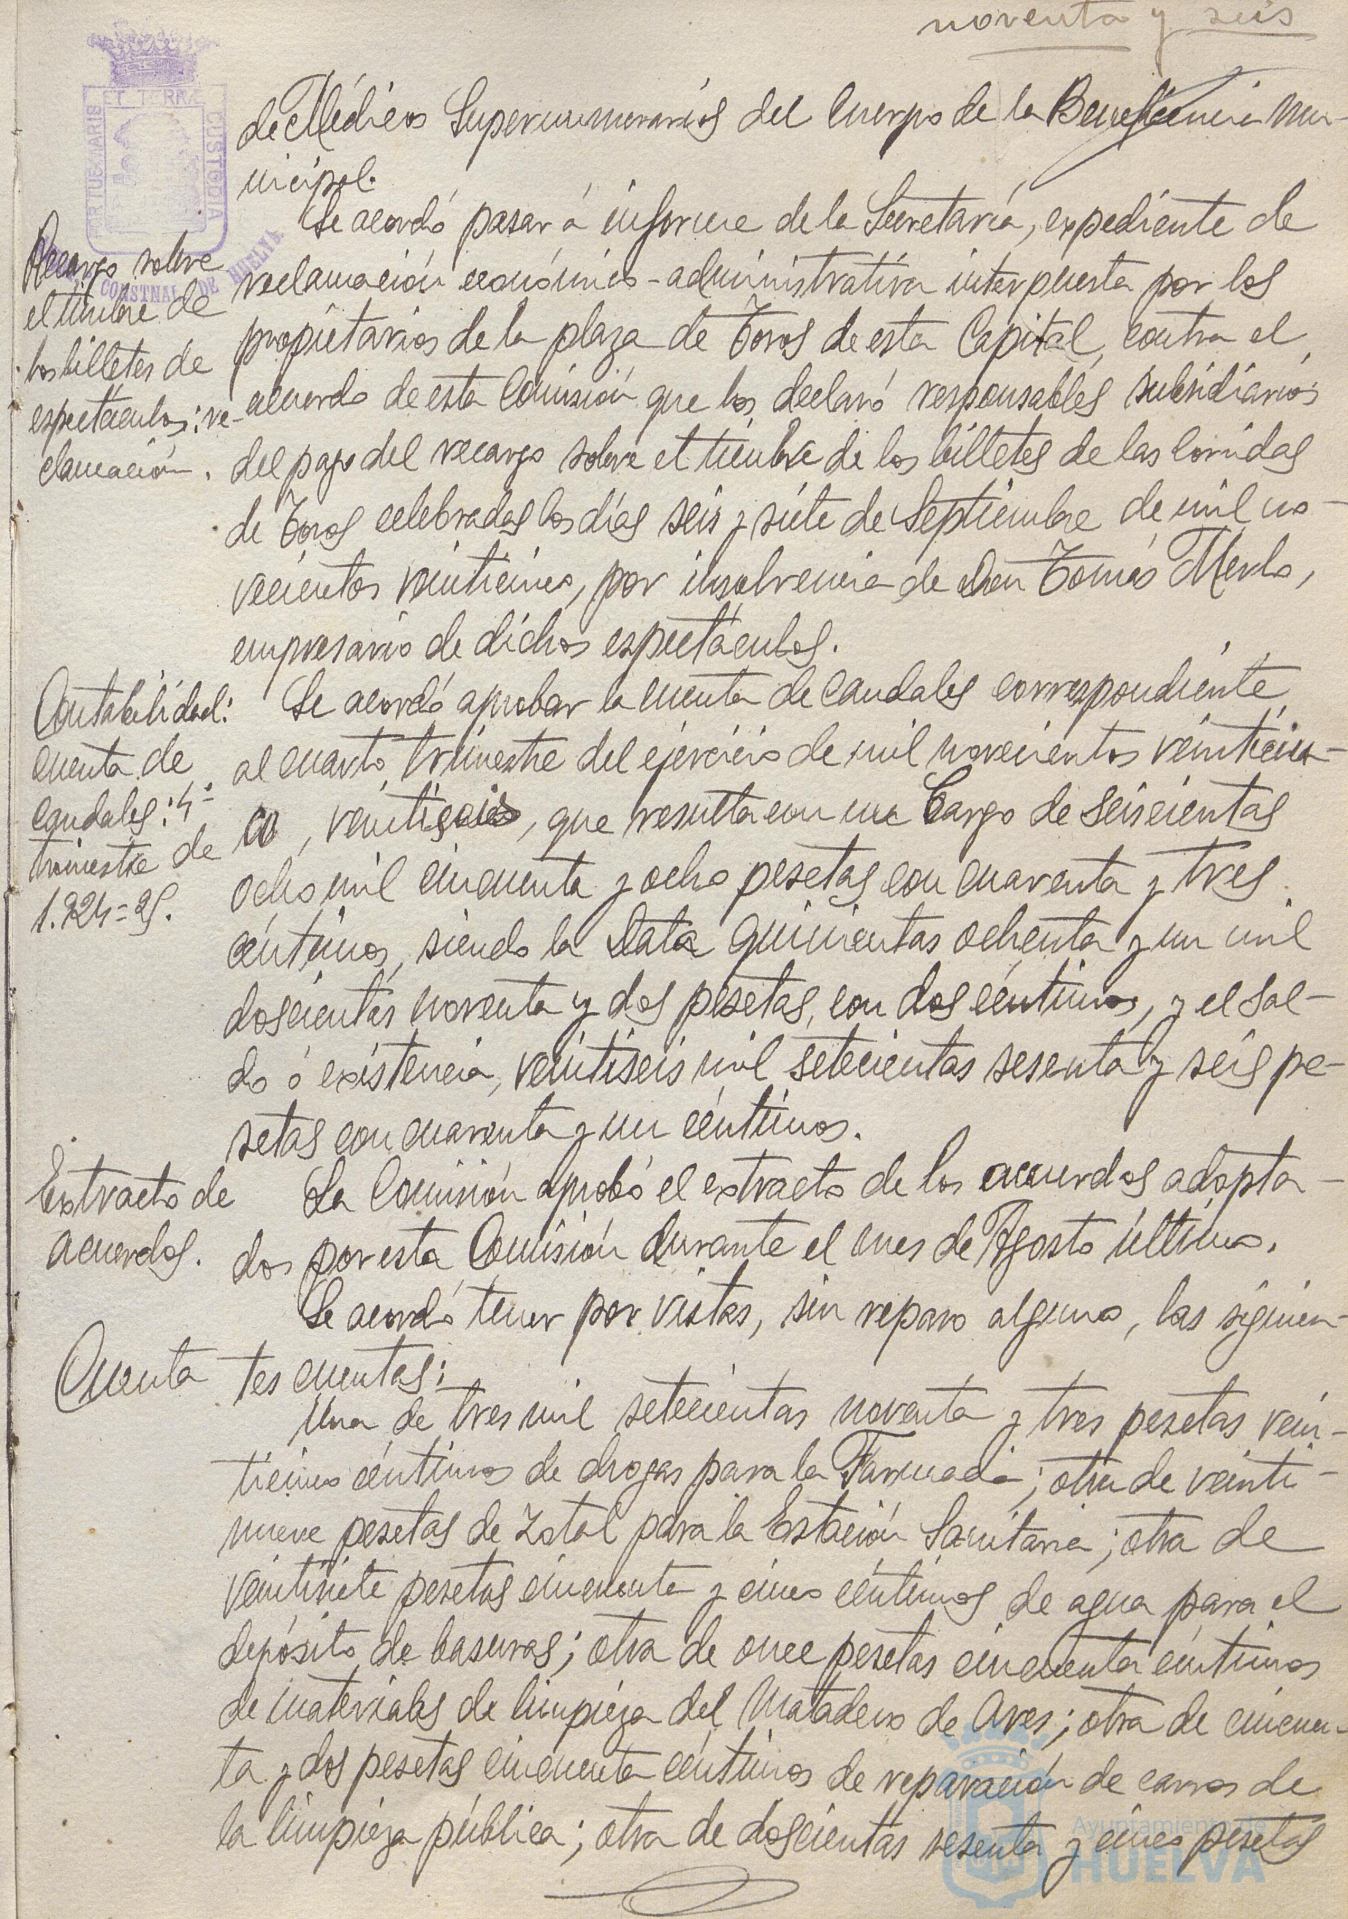 noventa y seis
de Médicos Supernumerarios del Cuerpo de la Beneficencia Mu-
nicipal.
Se acordó pasar á informe de la Secretaría, expediente de
Recargo sobre
el timbre de
los billetes de
espectáculos: re-
clamación.
reclamación económico-administrativa interpuesta por los
propietarios de la plaza de Toros de esta Capital, contra el
acuerdo de esta Comisión que los declaró responsables subsidiarios
del pago del recargo sobre el timbre de los billetes de las corridas
de Toros celebradas los días seis y siete de Septiembre de mil no-
vecientos veinticinco, por insolvencia de Don Tomás Merlo,
empresario de dichos espectáculos.
Contabilidad:
cuenta de
caudales: 4º
trimestre de
1.924=25.
Se acordó aprobar la cuenta de caudales correspondiente
al cuarto trimestre del ejercicio de mil novecientos veinticin-
co, veintiseis, que resulta con un Cargo de seiscientas
ocho mil cincuenta y ocho pesetas con cuarenta y tres
céntimos, siendo la Data quinientas ochenta y un mil
doscientas noventa y dos pesetas, con dos céntimos, y el sal-
do ó existencia, veintiseis mil setecientas sesenta y seis pe-
setas con cuarenta y un céntimos.
Extracto de
acuerdos.
La Comisión aprobó el extracto de los acuerdos adopta-
dos por esta Comisión durante el mes de Agosto último.
Se acordó tener por vistas, sin reparo alguno, las siguien-
Cuenta
tes cuentas:
Una de tres mil setecientas noventa y tres pesetas vein-
ticinco céntimos de drogas para la Farmacia; otra de veinti-
nueve pesetas de Zotal para la Estación Sanitaria; otra de
veintisiete pesetas cincuenta y cinco céntimos de agua para el
depósito de basuras; otra de once pesetas cincuenta céntimos
de materiales de limpieza del Matadero de Aves; otra de cincuen-
ta y dos pesetas cincuenta céntimos de reparación de carros de
la limpieza pública; otra de doscientas sesenta y cinco pesetas
PORTUS MARIS
ET TERRÆ
CUSTODIA
CONSTNAL. DE HUELVA
Ayuntamiento de
HUELVA